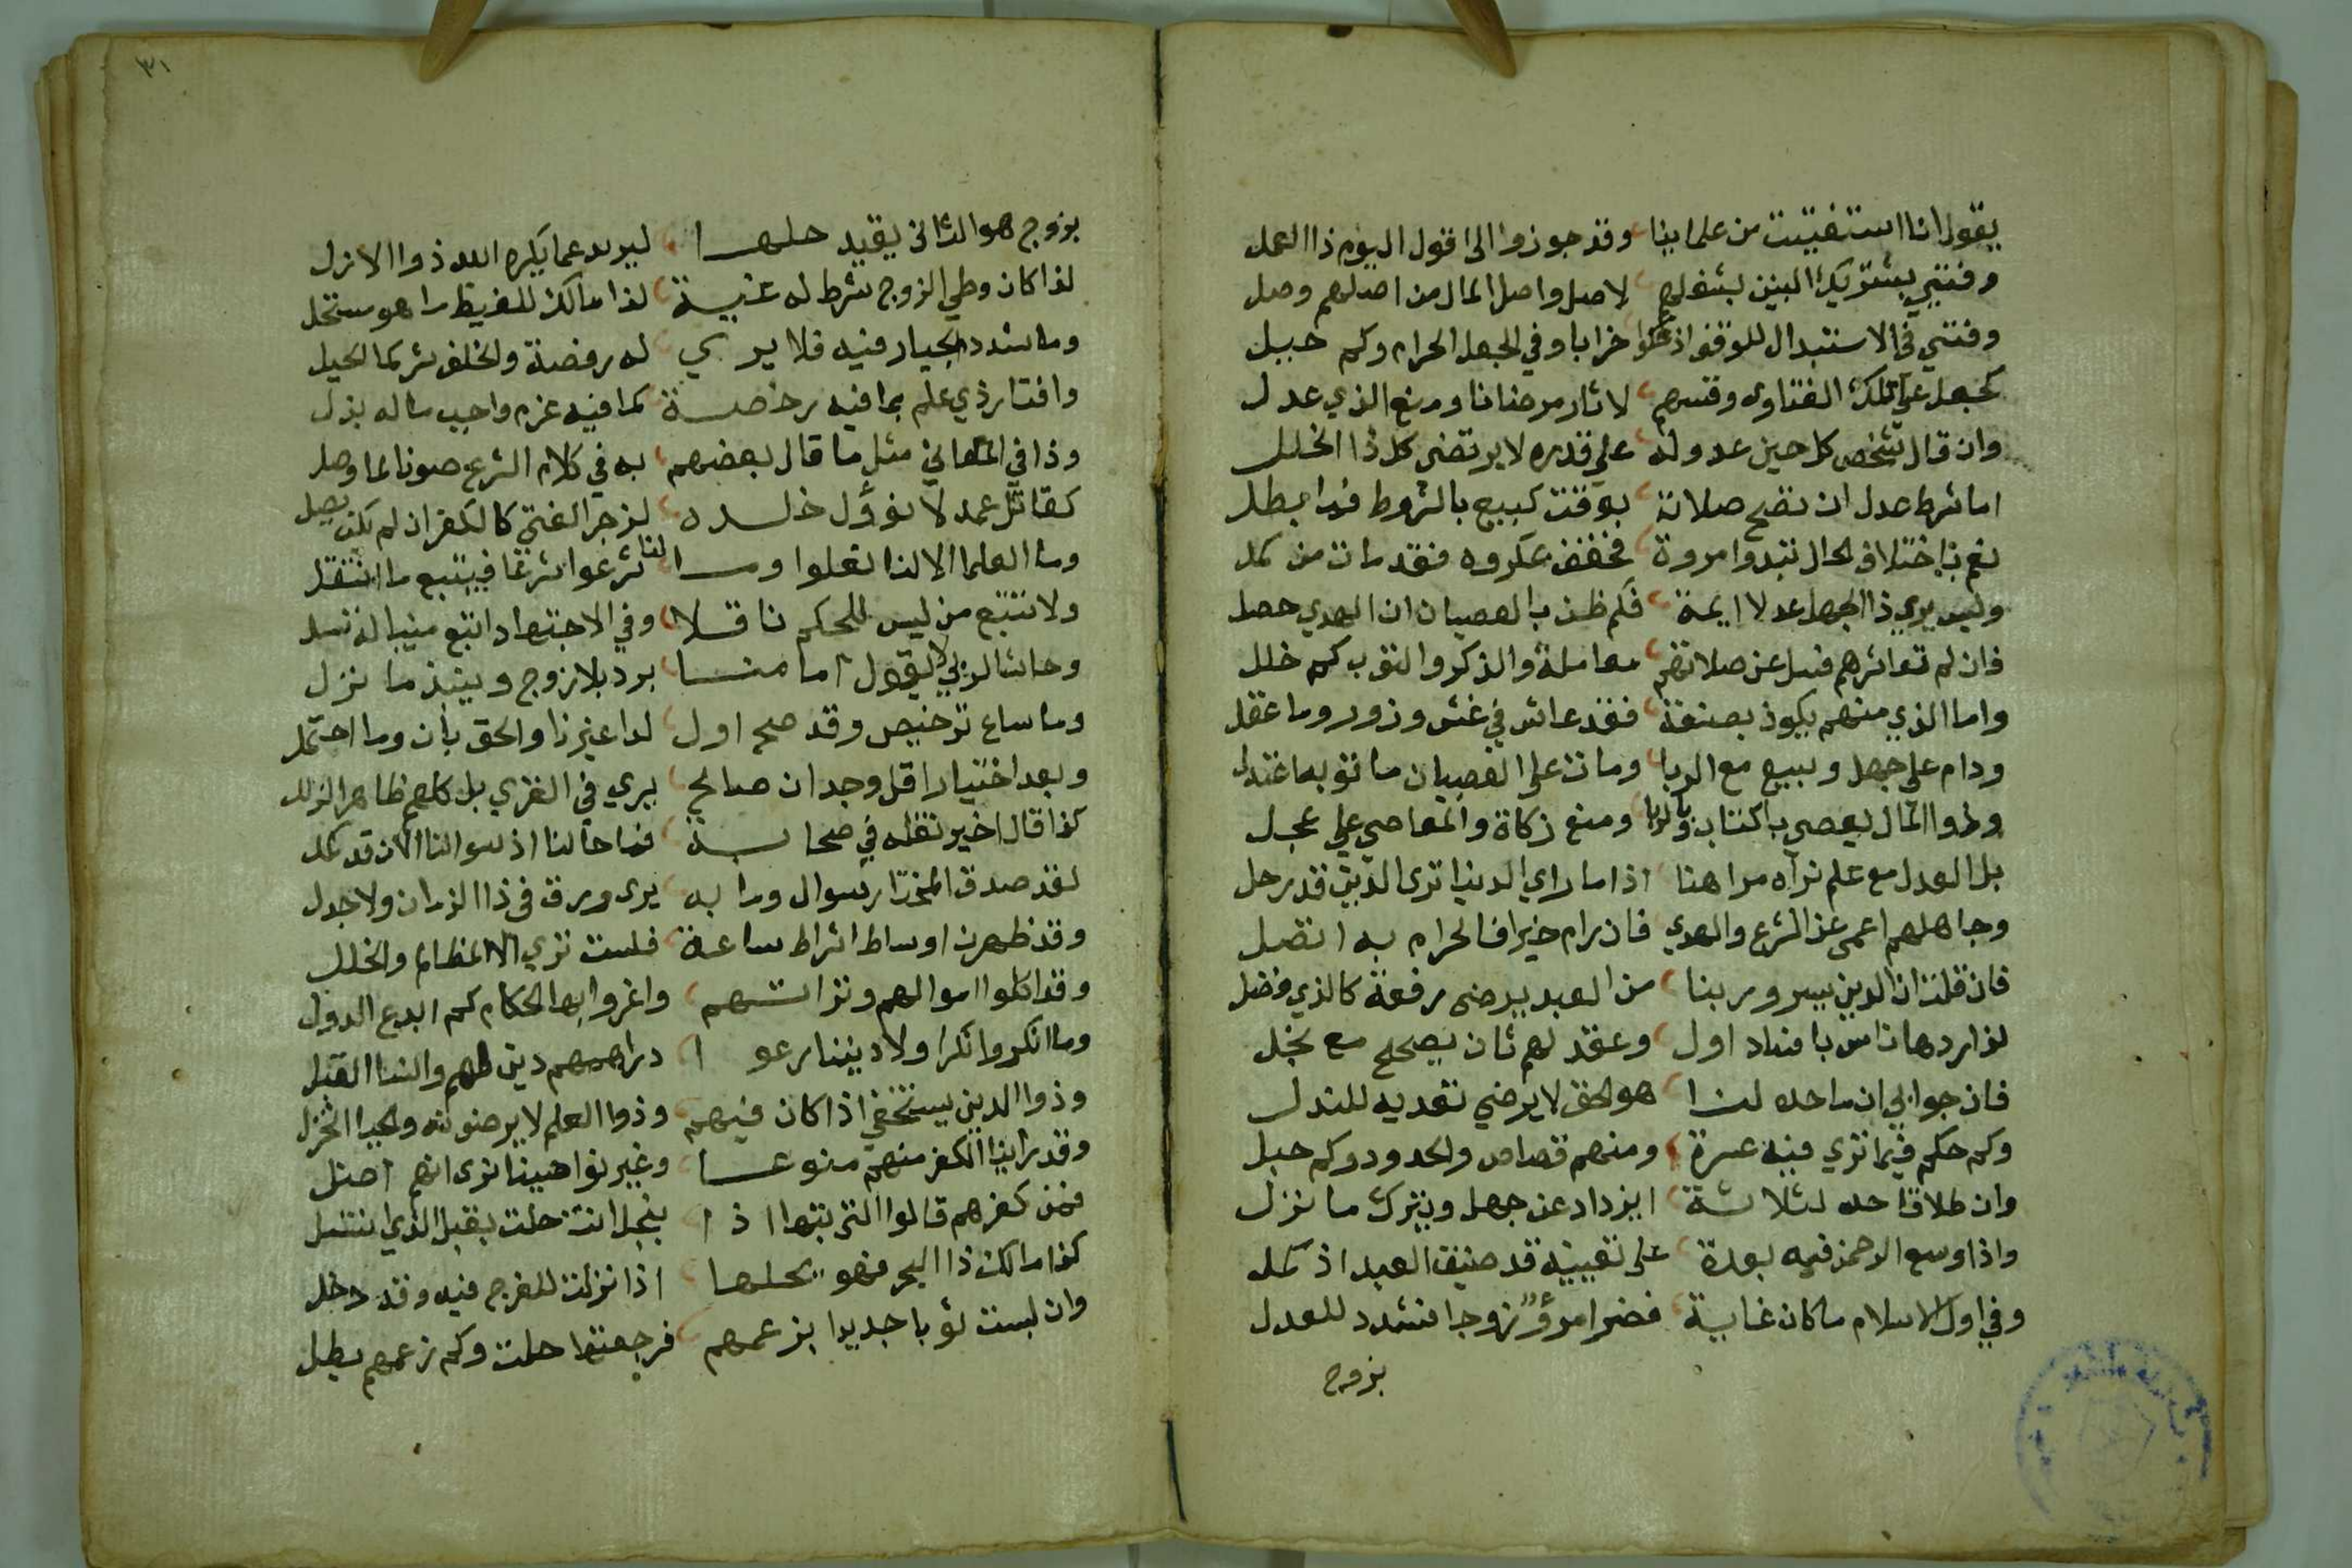 يقول انا استفتيت من علماينا وقد جوزوا الى قول اليوم ذا العمل
وفتني بشتريك البنين بشغلهم لاصل واصل المال من اصلهم وصل
وفتني في الاستبدال للوقف اذ خرابا وفي الجعل الحرام وكم حبيل
كجعل على تلك الفتاوى وقسهم لاثار مرضانا ومنع الذي عدل
وان قال شخص كل حين عدوله على قدره لا يرتضى كل ذا الخلل
اما شرط عدل ان تصح صلاته بوقت كبيع بالشروط فما بطل
نعم باختلاف الحال تبدوا مروة فخفف مكروه فقد مات من كمل
وليس يرى ذا الجهل عدلا ايمة فكم ظن بالعصيان ان الهدي حصل
فان لم تعاشرهم فسل عن صلاتهم معاملة والذكر والتوب كم خلل
واما الذي منهم يكون بصنعة فقد عاش في غش وزور وما عقل
ودام على جهل وبيع مع الربا ومات على العصيان ما توبه اغتدل
وطوا المال يعصي باكتتاب وبالربا ومنع زكاة والمعاصي على عجل
بل العدل مع علم نراه مداهنا اذا ما راي الدنيا ترى الدين قد رحل
وجاهلهم اعمى عن الشرع والهدي فان رام خيرا فالحرام به اتصل
فان قلت ان الدين يسر وربنا من العبد يرضى رفعة كالذي فضل
لذا ردها ناس بافساد اول وعقد لهم ثان يصحح مع نجل
فان جوابي ان ما حده لنا هو الحق لا يرضي تعديه للتدل
وكم حكم فيما تري فيه عسرة ومنهم قصاص والحدود وكم حبل
وان طلاقا حده لثلاثة ايزداد عن جهل ويترك ما نزل
واذا وسع الرحمن فيه بعدة على تعيينه قد ضيق العبد اذ كمل
وفي اول الاسلام ما كان غاية فضر امرؤ زوجا فشدد للعدل
بزوج
٣١
بزوج هو الثاني يقيد حلها ليرد عما يكره الله ذوا الازل
لذا كان وطي الزوج شرط له غيبة لذا مالك للغيظ ما هو ستحل
وما شدد الجبار فيه فلا يري له رفضة والخلف شر كما الحيل
وافتا رذي علم بما فيه رخصة كما فيه عزم واجب ماله بذل
وذا في المعاني مثل ما قال بعضهم به في كلام الشرع صونا لما وصل
كقاتل عمد لا نؤول خلده لزجر الفتى كالكفر ان لم يكن يصل
وما العلما الا لذا نقلوا وما لنا شرعوا شرعا فيتبع ما انتقل
ولا نتبع من ليس للحكم ناقلا وفي الاجتهاد اتبع منيبا له تسل
وحاشا لربي لا يقول امامنا برد بلا زوج وينبذ ما نزل
وما ساع ترخيص وقد صح اول لدا غيرنا والحق بان وما احتمل
وبعد اختيار اقل وجدان صالح يري في القري بل كلهم ظاهر الزلل
كذا قال اخير تقله في صحابة فما حالنا اذ سوالنا الان قد كمل
لقد صدق المختار سوال وما به يرى ورق في ذا الزمان ولا جدل
وقد ظهرت اوساط اشراط ساعة فلست تري الا المظالم والخلل
وقد اكلوا اموالهم وتراثهم واغروا بها الحكام كم ابدع الدول
وما انكروا نكرا ولا ديننا رعوا دراهمهم دين لهم والنسا القبل
وذوا الدين يستخفي اذا كان فيهم وذوا العلم لا يرضونه والحيا انخزل
وقد راينا الكفر منهم منوعا وغير نواهينا نرى انهم اضل
فمن كفرهم قالوا التي بتها اذا بنجل انت حلت بقبل الذي انتسل
كذا مالك ذا البحر فهو يحلها اذا نزلت للفرج فيه وقد دخل
وان لبست ثوبا جديدا بزعمهم فرجعتها حلت وكم زعمهم بطل